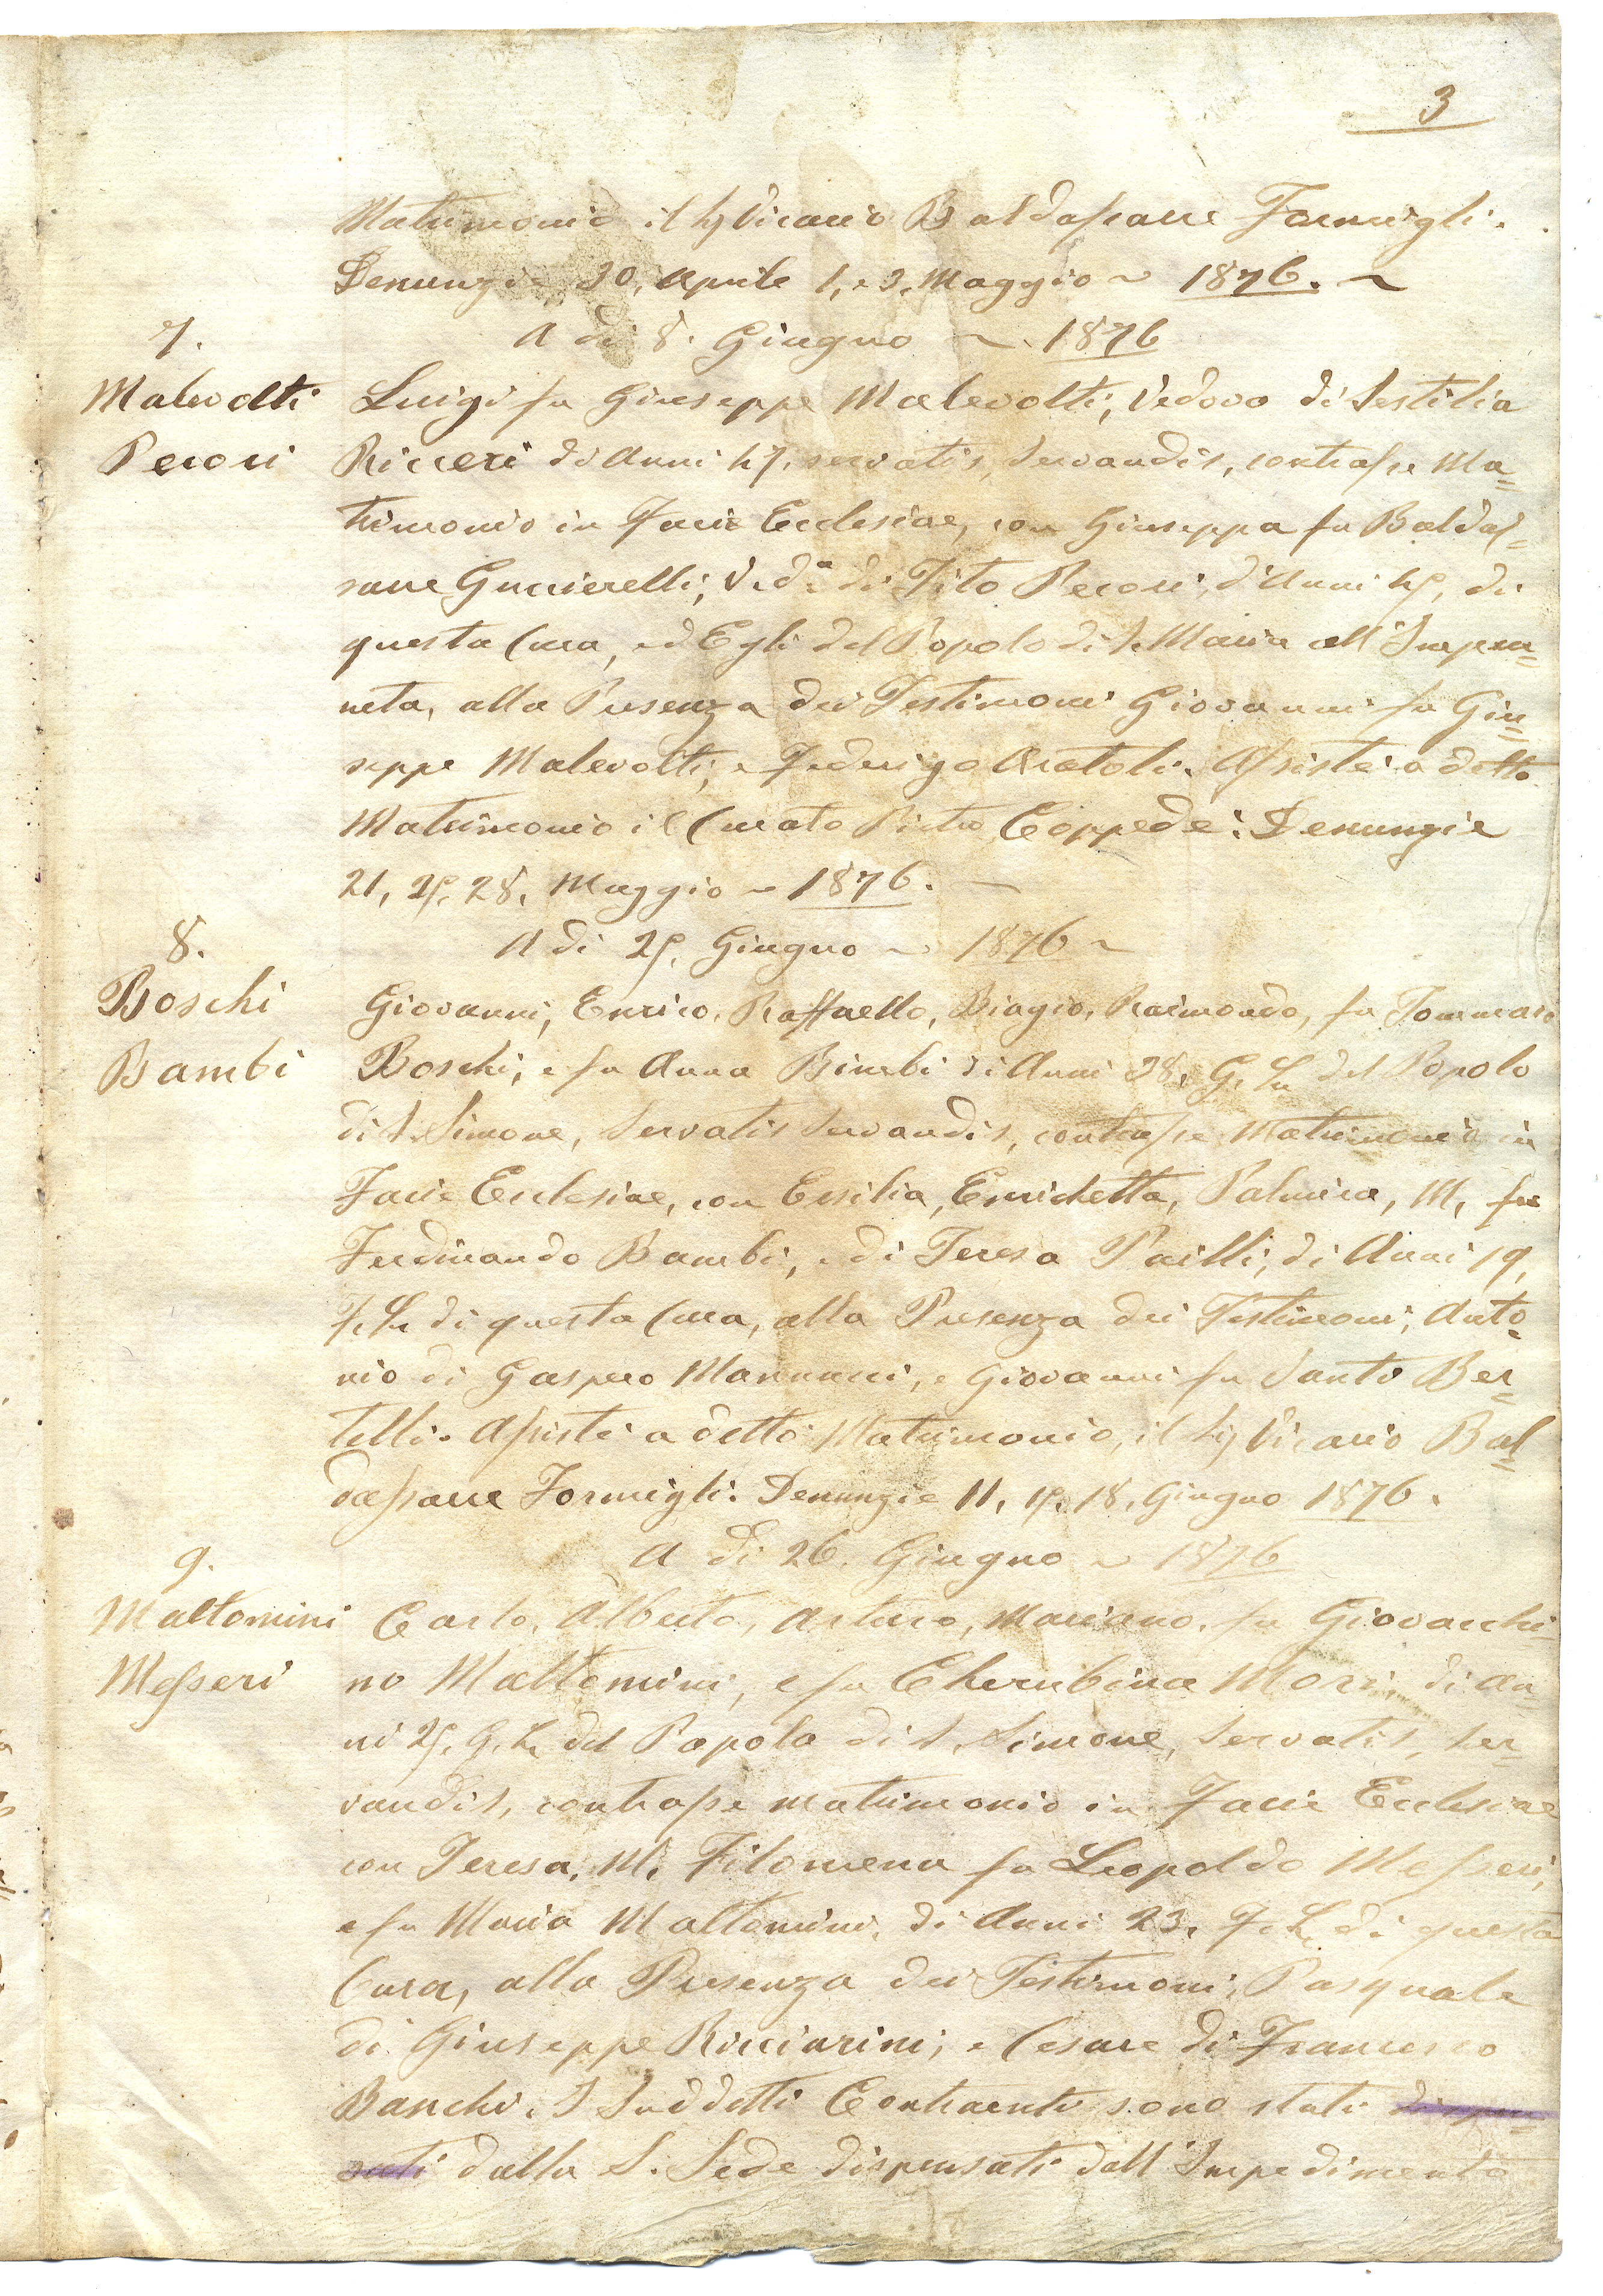 3
Matrimonio il Sig Vicario Baldassarre Formigli.
Denunzie, 30, Aprile 1, e 3, Maggio ~ 1876. ~
7.
A di 8. Giugno ~ 1876
Malevolti
Pecori
Luigi fu Giuseppe Malevolti, Vedovo di Sestilia
Ricceri di Anni 47, servatis, Servandis, contrasse Ma=
trimonio in Facie Ecclesiae, con Giuseppa fu Baldas=
sarre Guccierelli, Veda di Tito Pecori, d'Anni 45, di
questa Cura, ed Egli del Popolo di S. Maria all'Impru=
neta, alla Presenza dei Testimoni Giovanni fu Giu=
seppe Malevolti, e Federigo Aratoli. Assistè a detto
Matrimonio il Curato Pietro Coppedè. Denunzie
21, 25, 28, Maggio ~ 1876.
8.
A di 25, Giugno ~ 1876 ~
Boschi
Bambi
Giovanni, Enrico, Raffaello, Biagio, Raimondo, fu Tommaso
Boschi, e fu Anna Bimbi di Anni 28, G. Lu del Popolo
di S. Simone, Servatis Servandis, contrasse Matrimonio in
Facie Ecclesiae, con Ersilia, Enrichetta, Palmira, M, fu
Ferdinando Bambi, e di Teresa Pailli, di Anni 19,
F. Lu di questa Cura, alla Presenza dei Testimoni, Anto=
nio di Gaspero Mannucci, e Giovanni fu Santo Ber=
telli. Assistè a detto Matrimonio, il Sig Vicario Bal=
dassarre Formigli. Denunzie 11, 15, 18, Giugno 1876.
9.
A di 26. Giugno ~ 1876
Maltomini
Messeri
Carlo, Alberto, Arturo, Mariano, fu Giovacchi=
no Maltomini, e fu Cherubina Mori, di An=
ni 25, G. L. del Popolo di S. Simone, Servatis, Ser=
vandis, contrasse matrimonio in Facie Ecclesiae
con Teresa, M. Filomena fu Leopoldo Messeri,
e fu Maria Maltomini, di Anni 23, F. L. di questa
Cura, alla Presenza dei Testimoni, Pasquale
di Giuseppe Ricciarini, e Cesare di Francesco
Banchi. I Suddetti Contraenti sono stati dispen
sati dalla S. Sede dispensati dall'Impedimento